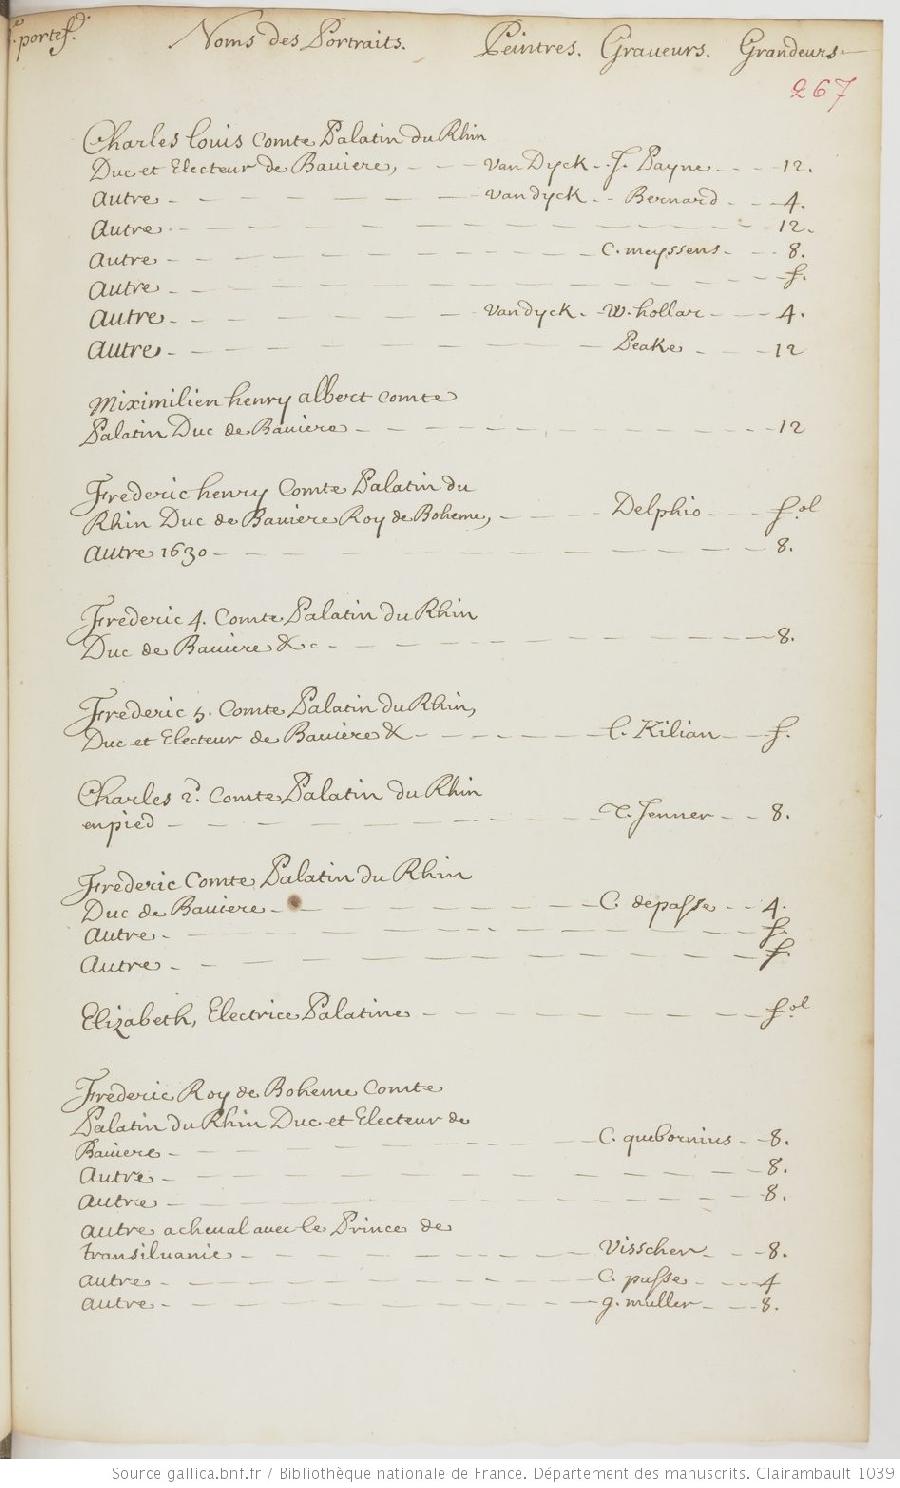 portef.
Noms des Portraits. Peintres. Graveurs. Grandeurs
267
Charles louis comte Palatin du Rhin
Duc et Electeur de Baviere, van Dyck - J. Payne 12.
autre vandyck Bernard 4.
autre 12.
autre C. meyssens 8.
autre f.
autre vandyck W. hollar 4.
autre Peake 12
Miximilien henry albert comte
Palatin Duc de Baviere 12
Frederic henry Comte Palatin du
Rhin Duc de Baviere Roy de Boheme, Delphio fol
autre 1630 8.
Frederic 4. Comte Palatin du Rhin
Duc de Baviere &c. 8.
Frederic 5. Comte Palatin du Rhin,
Duc et Electeur de Baviere & l. Kilian f.
Charles 2d. Comte Palatin du Rhin
en pied T. Jenner 8.
Frederic Comte Palatin du Rhin
Duc de Baviere C. depasse 4.
autre f.
autre f.
Elizabeth, Electrice Palatine fol
Frederic Roy de Boheme Comte
Palatin du Rhin Duc et Electeur de
Baviere C. quibornius 8.
autre 8.
autre 8.
autre acheval avec le Prince de
transilvanie Visscher 8.
autre C. passe 4
autre g. muller 8.
Source gallica.bnf.fr / Bibliothèque nationale de France. Département des manuscrits. Clairambault 1039